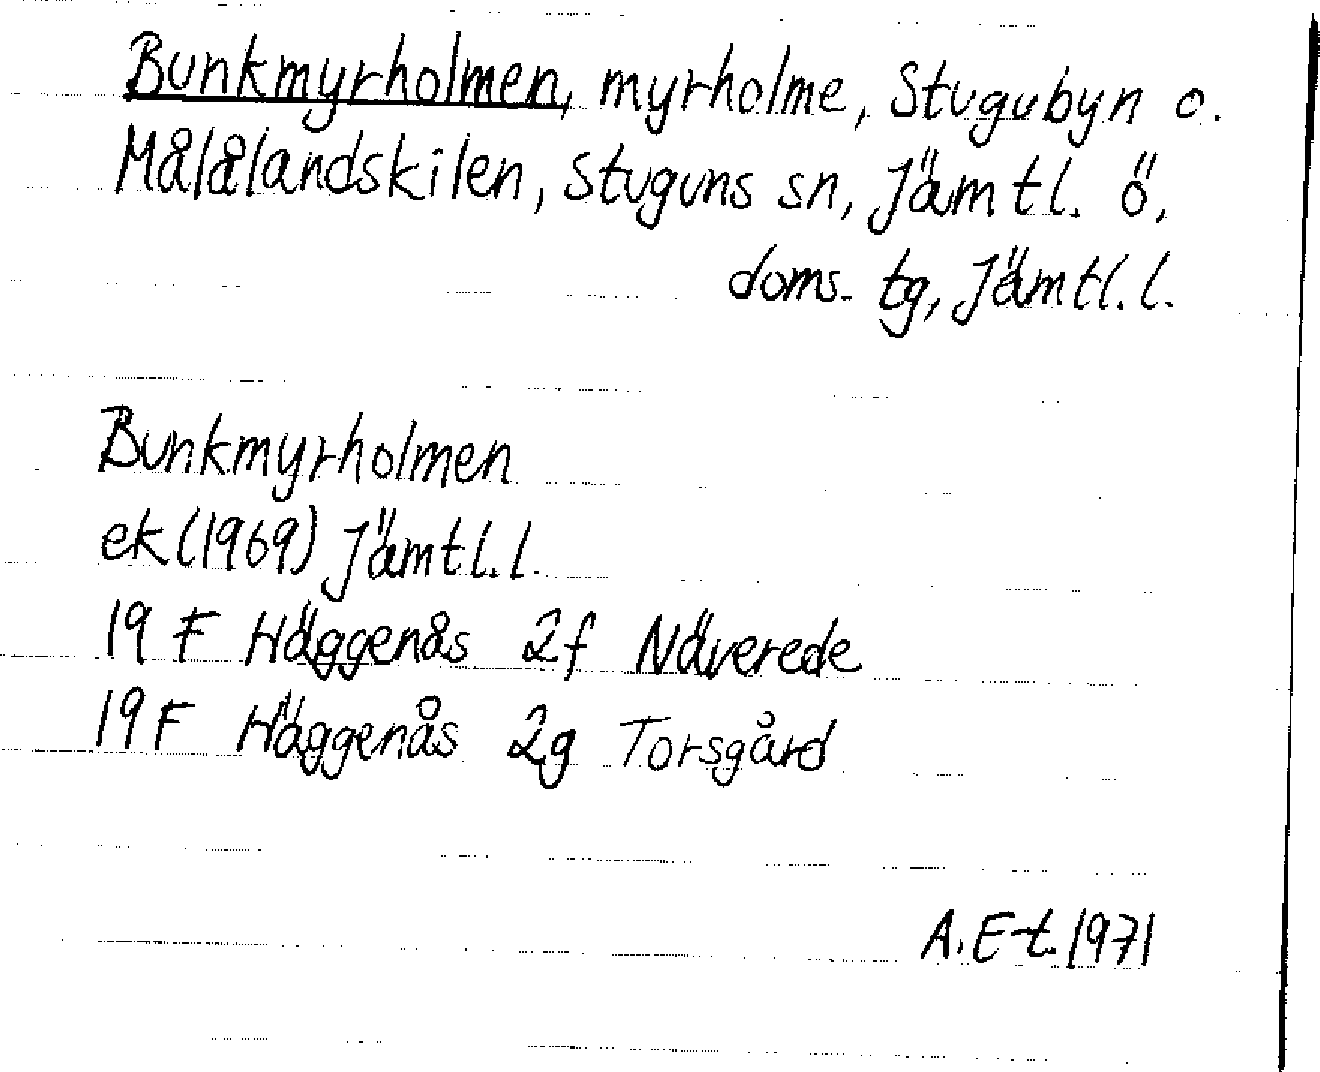 Bunkmyrholmen, myrholme, Stugubyn o.
Målålandskilen, Stuguns sn, Jämtl. ö,
doms. tg, Jämtl. l.
Bunkmyrholmen
ek (1969) Jämtl. l.
19 F Häggenås 2f Näverede
19 F Häggenås 2g Torsgård
A. E-t. 1971